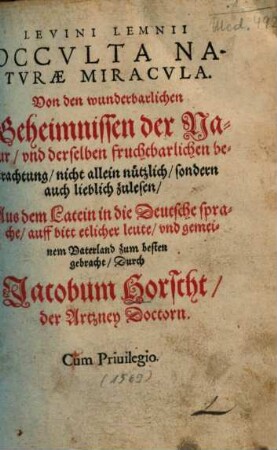 LEVINI LEMNII
OCCVLTA NA-
TVRÆ MIRACVLA.
Von den wunderbarlichen
Geheimnissen der Na-
ur / vnd derselben fruchtbarlichen be-
rachtung / nicht allein nützlich / sondern
auch lieblich zulesen /
Aus dem Latein in die Deutsche spra-
che / auff bitt etlicher leute / vnd gemei-
nem Vaterland zum besten
gebracht / Durch
Jacobum Horscht /
der Artzney Doctorn.
Cum Priuilegio.
(1569)